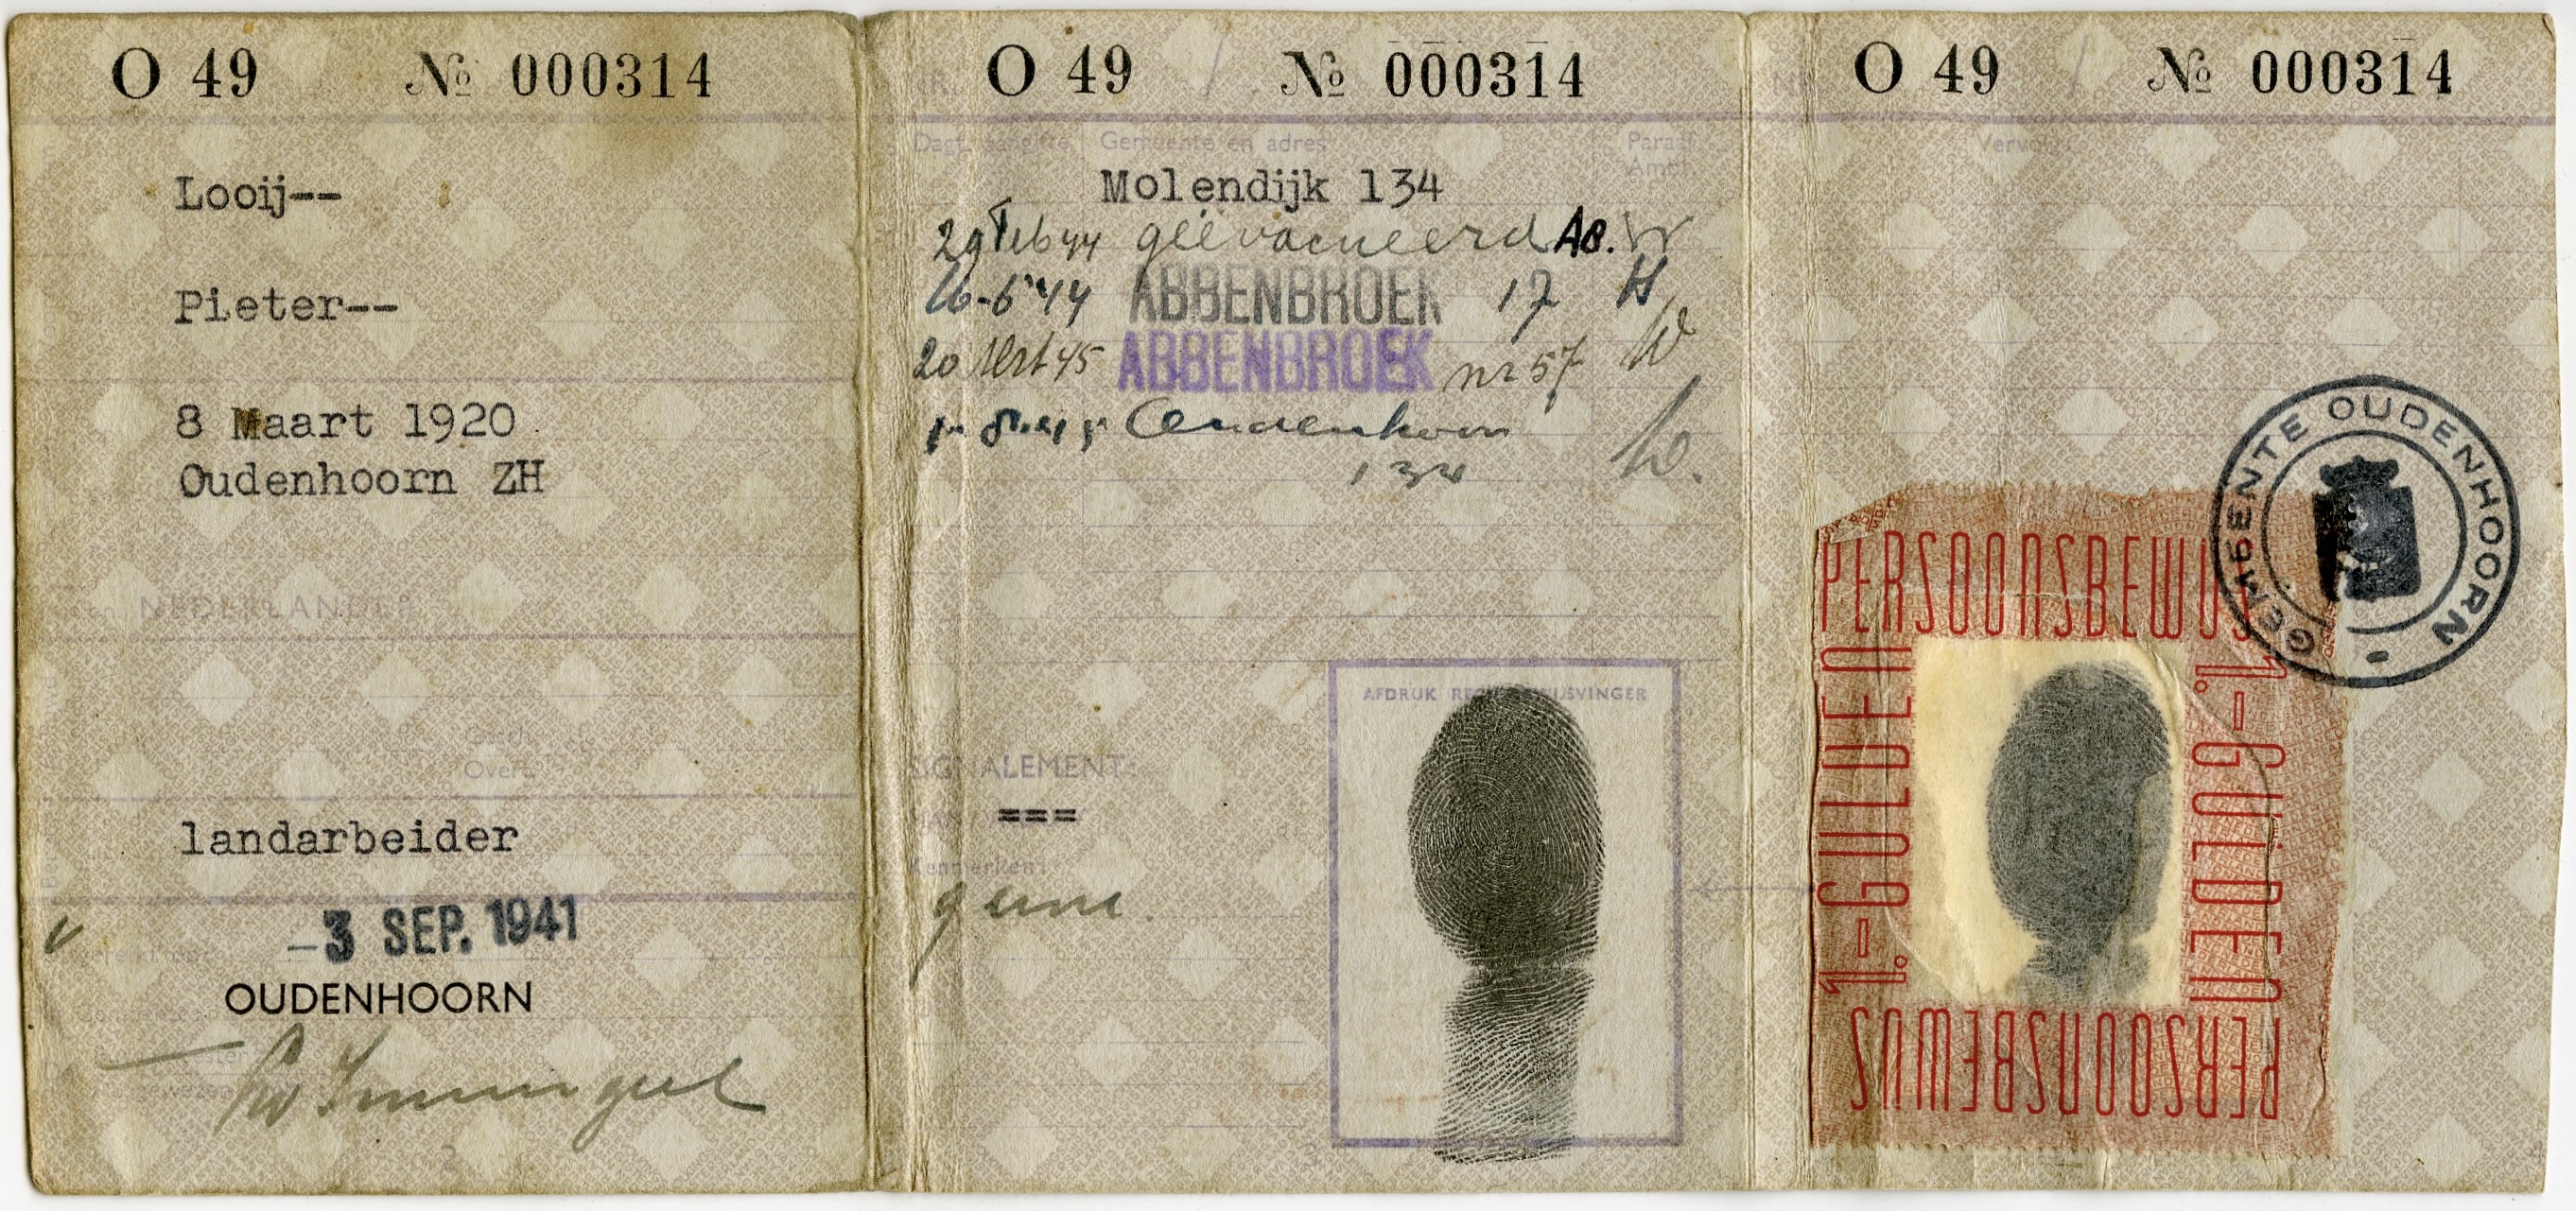 O 49 № 000314
Looij--
Pieter--
8 Maart 1920
Oudenhoorn ZH
NEDERLANDER
Gesch.
Overl.
landarbeider
-3 SEP. 1941
OUDENHOORN
2
O 49 № 000314
Dagt. aangifte Gemeente en adres Paraaf Ambt
Molendijk 134
29 Feb 44 geëvacueerd AB.
16-6-'44 ABBENBROEK 17
20 45 ABBENBROEK nr 57
Oudenhoorn
134
AFDRUK RECHTERWIJSVINGER
SIGNALEMENT:
===
Kenmerken:
geene
3
O 49 № 000314
Vervolg
GEMEENTE OUDENHOORN
PERSOONSBEWIJS
1.-GULDEN
1.-GULDEN
PERSOONSBEWIJS